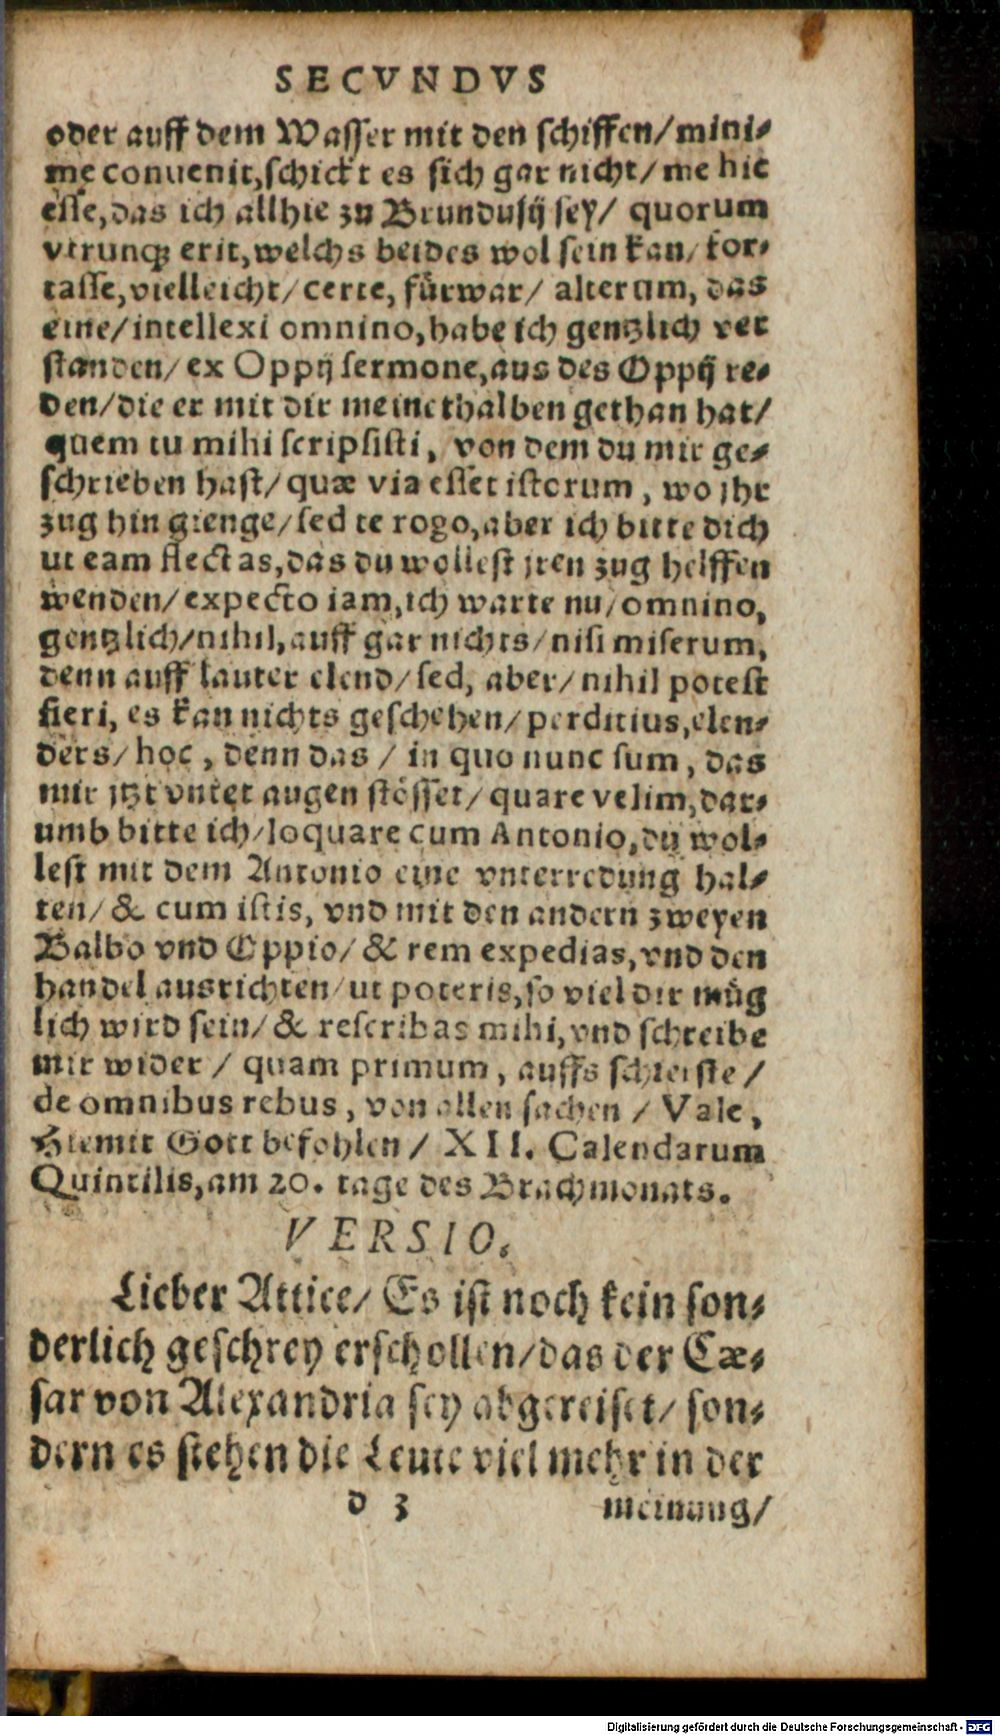 SECVNDVS
oder auff dem Wasser mit den schiffen/mini-
me conuenit,schickt es sich gar nicht/me hic
esse,das ich allhie zu Brundusij sey/ quorum
vtrunq; erit,welchs beides wol sein kan/ for-
tasse,vielleicht/certe, fürwar/ alterum, das
eine/intellexi omnino,habe ich gentzlich ver
standen/ ex Oppij sermone,aus des Oppij re-
den/die er mit dir meinethalben gethan hat/
quem tu mihi scripsisti, von dem du mir ge-
schrieben hast/quæ via esset istorum, wo jhr
zug hin gienge/sed te rogo,aber ich bitte dich
ut eam flectas,das du wollest jren zug helffen
wenden/expecto iam,ich warte nu/omnino,
gentzlich/nihil,auff gar nichts/nisi miserum,
denn auff lauter elend/sed, aber/nihil potest
fieri, es kan nichts geschehen/perditius,elen-
ders/hoc, denn das / in quo nunc sum, das
mir jtzt vnter augen stösset/quare velim,dar-
umb bitte ich/loquare cum Antonio,du wol-
lest mit dem Antonio eine vnterredung hal-
ten/ & cum istis, vnd mit den andern zweyen
Balbo vnd Oppio/ & rem expedias,vnd den
handel ausrichten/ut poteris,so viel dir müg
lich wird sein/ & rescribas mihi,vnd schreibe
mir wider / quam primum, auffs schleiste/
de omnibus rebus, von allen sachen / Vale,
Hiemit Gott befohlen/ XII. Calendarum
Quintilis,am 20. tage des Brachmonats.
VERSIO.
Lieber Attice/ Es ist noch kein son-
derlich geschrey erschollen/das der Cæ-
sar von Alexandria sey abgereiset/ son-
dern es stehen die Leute viel mehr in der
d 3 meinung/
Digitalisierung gefördert durch die Deutsche Forschungsgemeinschaft - DFG